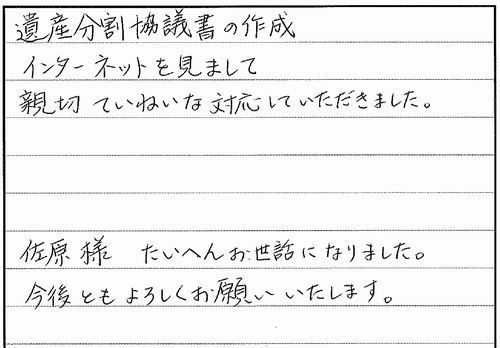 遺産分割協議書の作成
インターネットを見まして
親切ていねいな対応していただきました。
佐原様 たいへんお世話になりました。
今後ともよろしくお願いいたします。